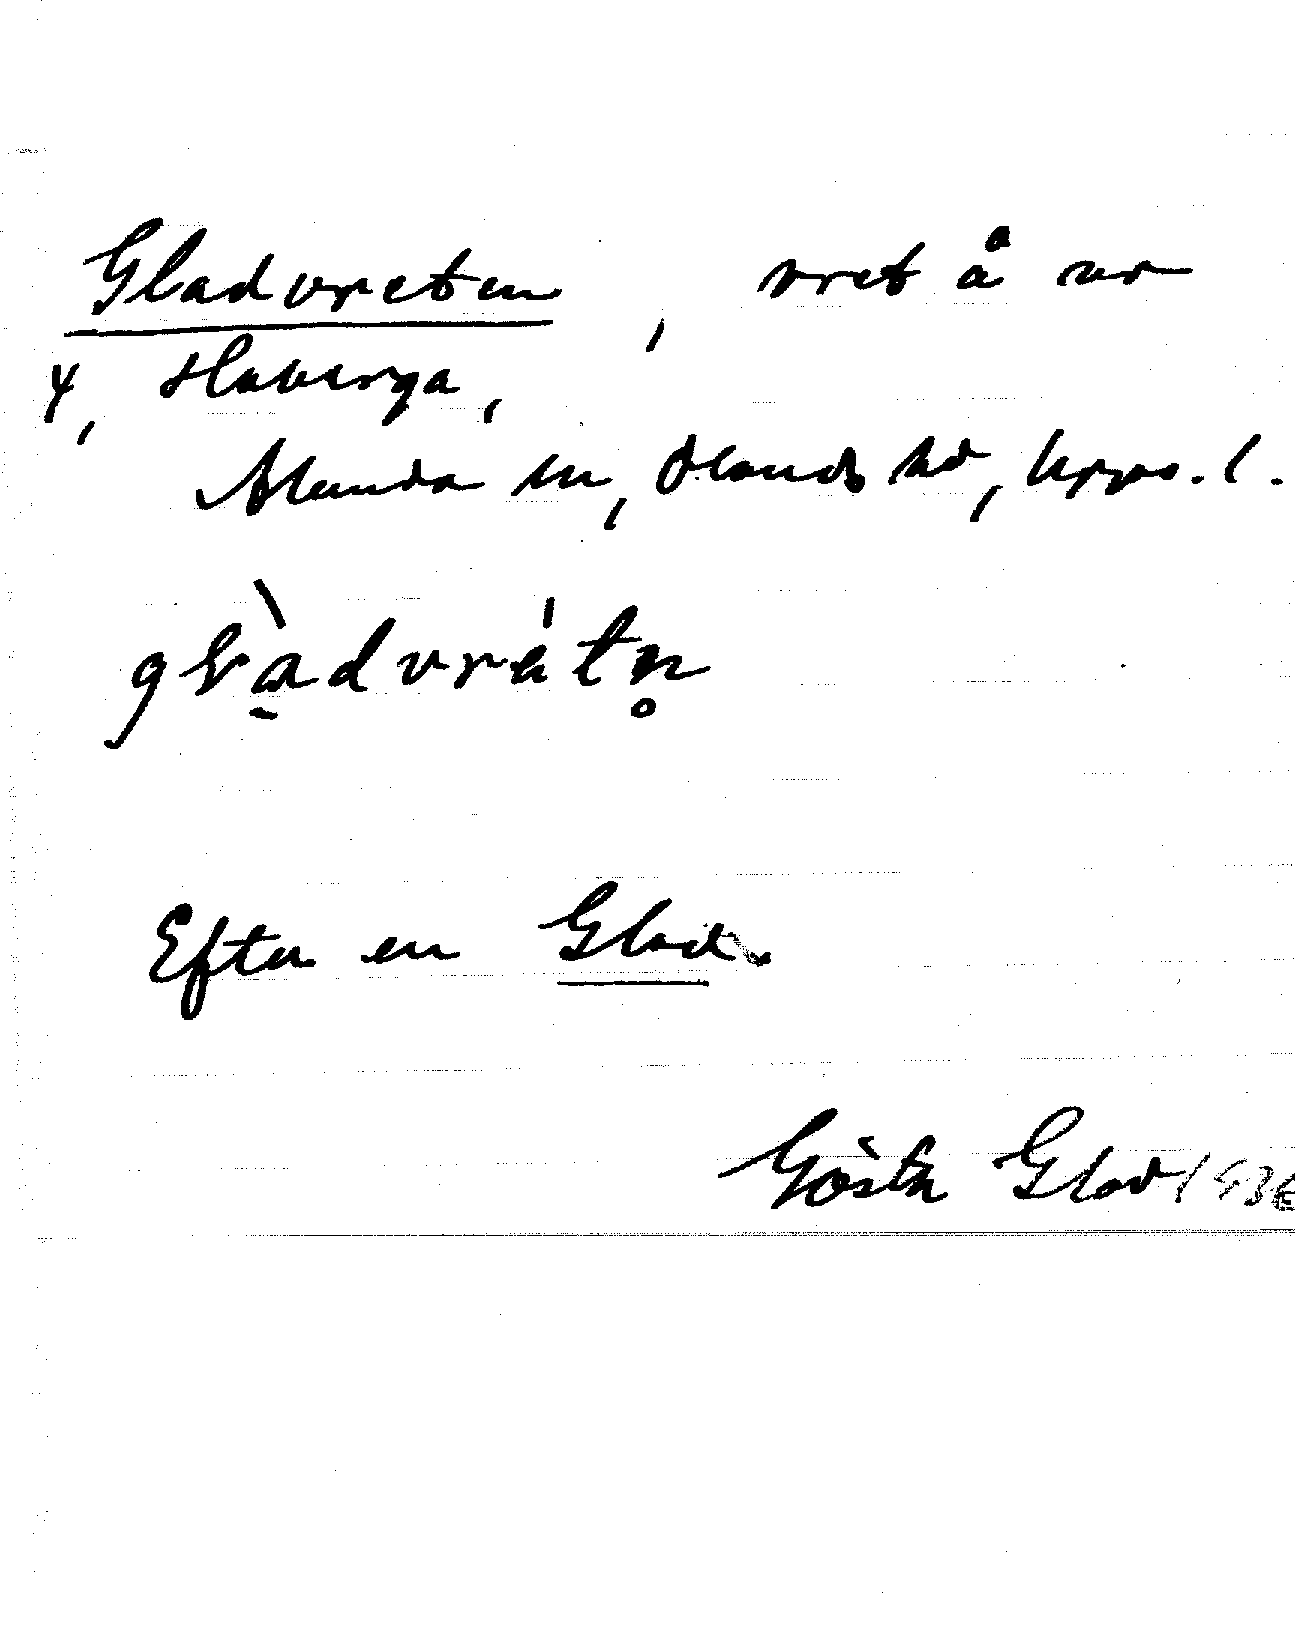 Gladvreten, vret å nr
4, Haberga,
Alunda sn, Olands hd, Upps. l.
glàdvrétn̥
Efter en Glad.
Gösta Glad 1936